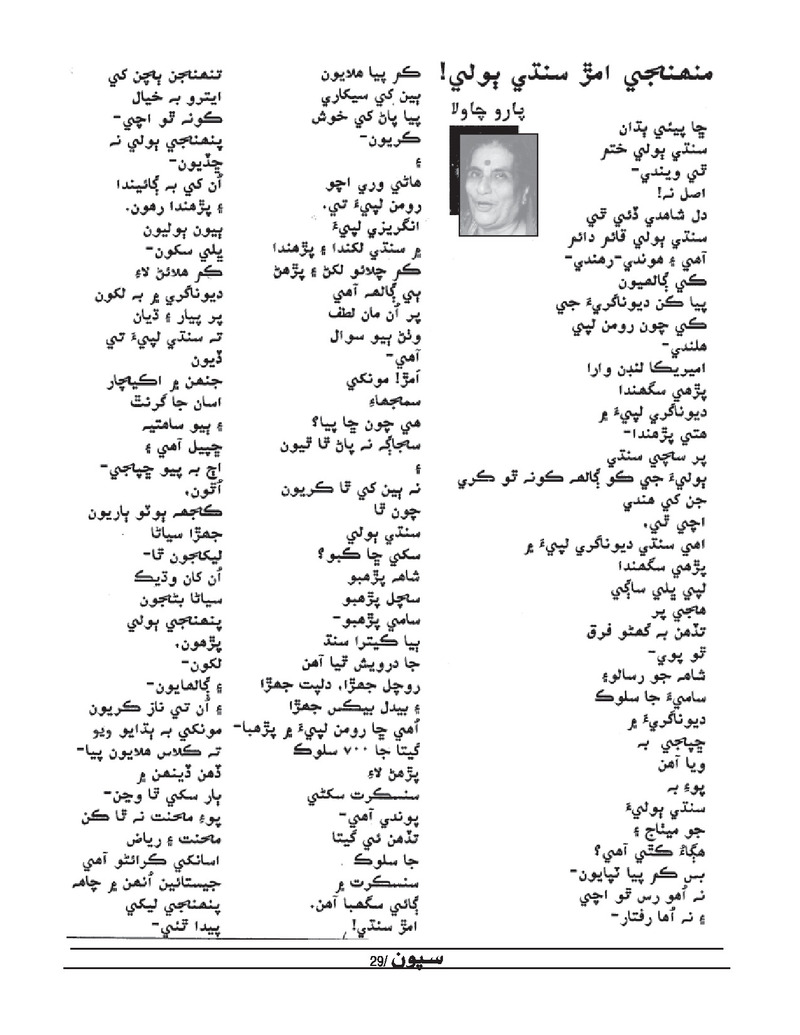 منھنجي امڙ سنڌي ٻولي!
پارو چاولا
ڇا پيئي ٻڌان
سنڌي ٻولي ختم
ٿي ويندي-
اصل نہ!
دل شاهدي ڏئي ٿي
سنڌي ٻولي قائم دائم
آهي ۽ هوندي-رهندي-
ڪي ڳالھيون
پيا ڪن ديوناگريءَ جي
ڪي چون رومن لپي
هلندي-
اميريڪا لنڊن وارا
پڙهي سگھندا
ديوناگري لپيءَ ۾
هتي پڙهندا-
پر سچي سنڌي
ٻوليءَ جي ڪو ڳالھہ ڪونہ ٿو ڪري
جن کي هندي
اچي ٿي،
اهي سنڌي ديوناگري لپيءَ ۾
پڙهي سگھندا
لپي ڀلي ساڳي
هجي پر
تڏهن بہ گھڻو فرق
ٿو پوي-
شاھہ جو رسالو۽
ساميءَ جا سلوڪ
ديوناگريءَ ۾
ڇپجي بہ
ويا آهن
پوءِ بہ
سنڌي ٻوليءَ
جو ميٺاج ۽
هڳاءُ ڪٿي آهي؟
بس ڪم پيا ٽپايون-
نہ اُهو رس ٿو اچي
۽ نہ اُها رفتار-
ڪم پيا هلايون
ٻين کي سيکاري
پيا پاڻ کي خوش
ڪريون-
۽
هاڻي وري اچو
رومن لپيءَ تي.
انگريزي لپيءَ
۾ سنڌي لکندا ۽ پڙهندا
ڪم چلائو لکڻ ۽ پڙهڻ
ٻي ڳالھہ آهي
پر اُن مان لطف
وٺڻ ٻيو سوال
آهي-
اَمڙ! مونکي
سمجھاءِ
هي چون ڇا پيا؟
سجاڳہ نہ پاڻ ٿا ٿيون
۽
نہ ٻين کي ٿا ڪريون
چون ٿا
سنڌي ٻولي
سکي ڇا ڪبو؟
شاھہ پڙهبو
سچل پڙهبو
سامي پڙهبو-
ٻيا ڪيترا سنڌ
جا درويش ٿيا آهن
روچل جھڙا، دلپت جھڙا
۽ بيدل بيڪس جھڙا
اُهي ڇا رومن لپيءَ ۾ پڙهبا-
گيتا جا ٧٠٠ سلوڪ
پڙهڻ لاءِ
سنسڪرت سکڻي
پوندي آهي-
تڏهن ئي گيتا
جا سلوڪ
سنسڪرت ۾
ڳائي سگھبا آهن.
امڙ سنڌي!
تنھنجن ٻچن کي
ايترو بہ خيال
ڪونہ ٿو اچي-
پنھنجي ٻولي نہ
ڇڏيون-
اُن کي بہ ڳائيندا
۽ پڙهندا رهون.
ٻيون ٻوليون
ڀلي سکون-
ڪم هلائڻ لاءِ
ديوناگري ۾ بہ لکون
پر پيار ۽ ڌيان
تہ سنڌي لپيءَ تي
ڏيون
جنھن ۾ اڪيچار
اسان جا گرنٿ
۽ ٻيو ساهتيہ
ڇپيل آهي ۽
اڄ بہ پيو ڇپجي-
اُٿون،
ڪجھہ ٻوٽو ٻاريون
جھڙا سياڻا
ليکجون ٿا-
اُن کان وڌيڪ
سياڻا بڻجون
پنھنجي ٻولي
پڙهون،
لکون-
۽ ڳالھايون-
۽ اُن تي ناز ڪريون
مونکي بہ ٻڌايو ويو
تہ ڪلاس هلايون پيا-
ڏهن ڏينھن ۾
ٻار سکي ٿا وڃن-
پوءِ محنت نہ ٿا ڪن
محنت ۽ رياض
اسانکي ڪرائڻو آهي
جيستائين اُنھن ۾ چاھہ
پنھنجي ليکي
پيدا ٿئي-
سپون /29